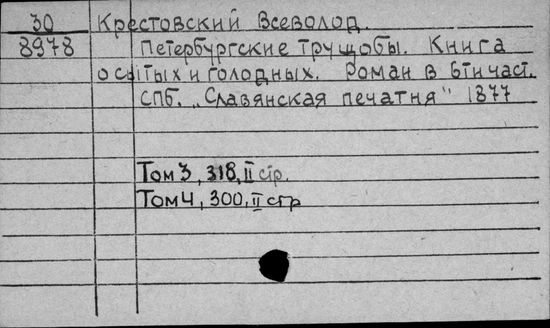 30 Крестовский Всеволод.
8978 Петербургские трущобы. Книга
о сытых и голодных. Роман в 6ти част.
СПб. "Славянская печатня" 1877
Том 3, 318, II стр.
Том 4, 300, II стр